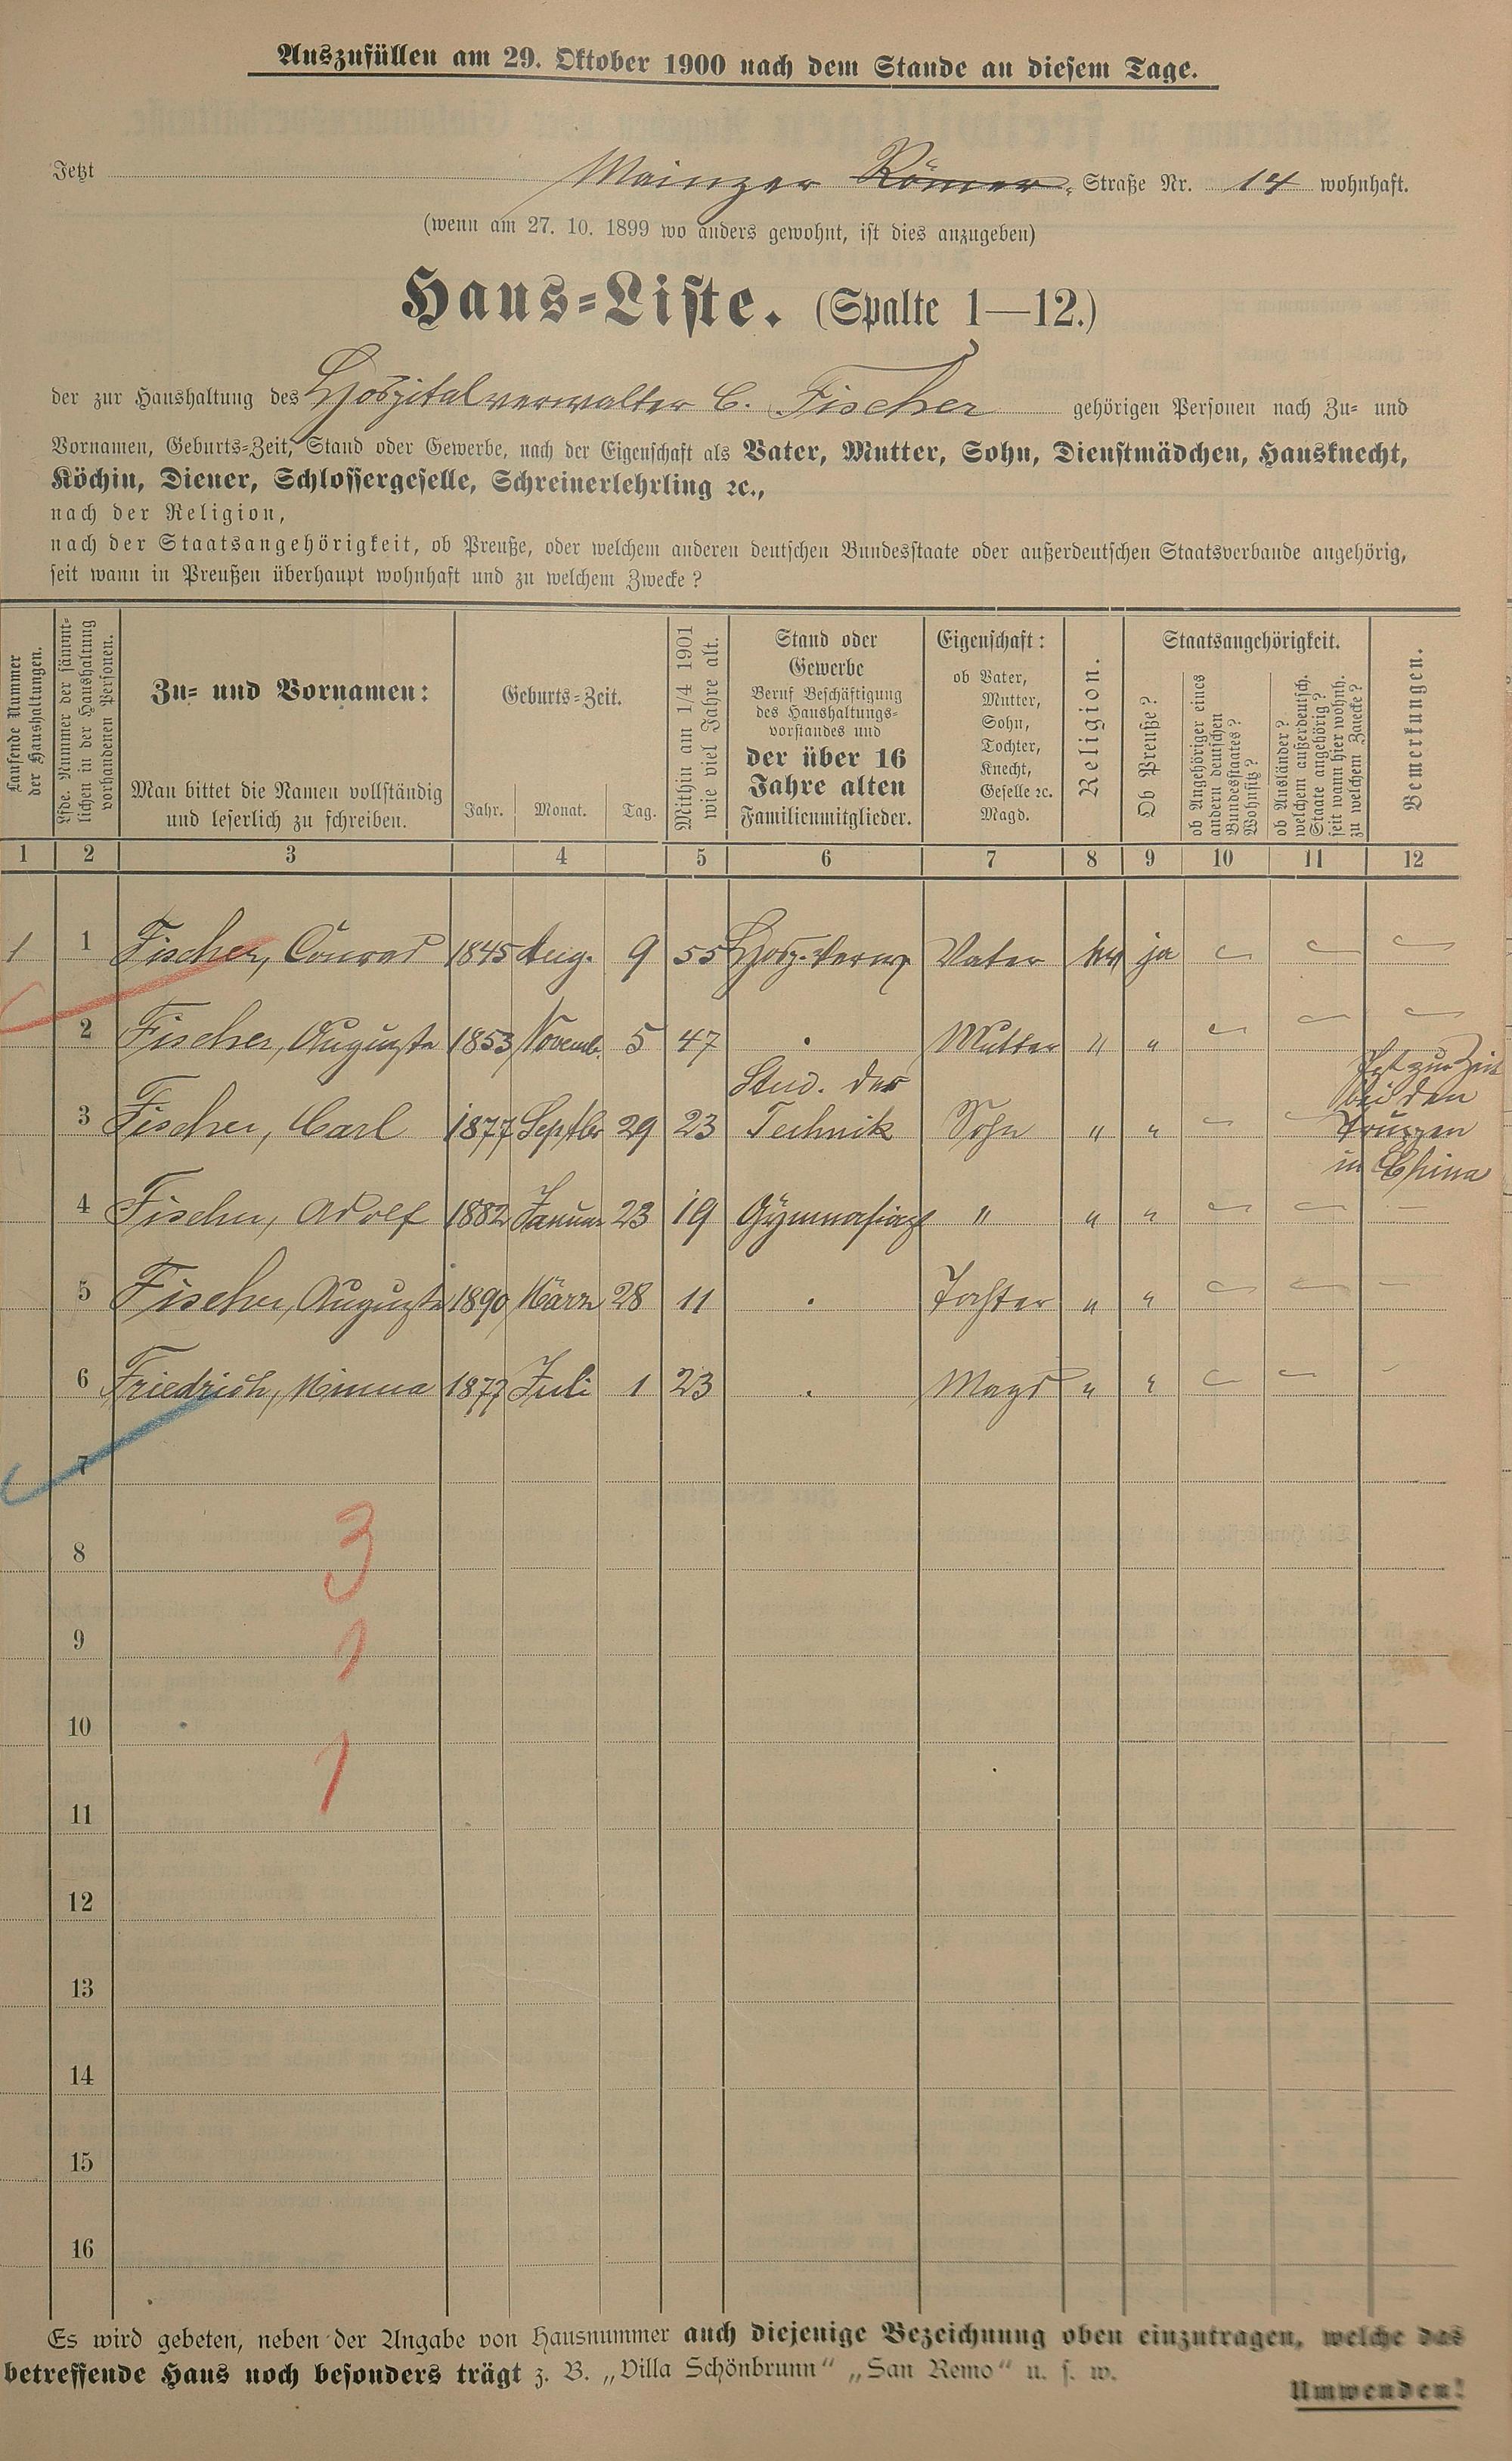 Auszufüllen am 29. Oktober 1900 nach dem Stande an diesem Tage.
Jetzt Mainzer Römer- Straße Nr. 14 wohnhaft.
(wenn am 27. 10. 1899 wo anders gewohnt, ist dies anzugeben)
Haus-Liste. (Spalte 1—12.)
der zur Haushaltung des Hospitalverwalter C. Fischer gehörigen Personen nach Zu- und
Vornamen, Geburts-Zeit, Stand oder Gewerbe, nach der Eigenschaft als Vater, Mutter, Sohn, Dienstmädchen, Hausknecht,
Köchin, Diener, Schlossergeselle, Schreinerlehrling ꝛc.,
nach der Religion,
nach der Staatsangehörigkeit, ob Preuße, oder welchem anderen deutschen Bundesstaate oder außerdeutschen Staatsverbande angehörig,
seit wann in Preußen überhaupt wohnhaft und zu welchem Zwecke?
Laufende Nummer
der Haushaltungen.
Lfde. Nummer der sämmt-
lichen in der Haushaltung
vorhandenen Personen.
Zu- und Vornamen:
Man bittet die Namen vollständig
und leserlich zu schreiben.
Geburts-Zeit.
Jahr. Monat. Tag.
Mithin am 1/4 1901
wie viel Jahre alt.
Stand oder
Gewerbe
Beruf Beschäftigung
des Haushaltungs-
vorstandes und
der über 16
Jahre alten
Familienmitglieder.
Eigenschaft:
ob Vater,
Mutter,
Sohn,
Tochter,
Knecht,
Geselle ꝛc.
Magd.
Religion.
Staatsangehörigkeit.
Ob Preuße?
ob Angehöriger eines
andern deutschen
Bundesstaates?
Wohnsitz?
ob Ausländer?
welchem außerdeutsch.
Staate angehörig?
seit wann hier wohnh.
zu welchem Zwecke?
Bemerkungen.
1 2 3 4 5 6 7 8 9 10 11 12
1 1 Fischer, Conrad 1845 Aug. 9 55 Hosp.-Verw. Vater ev ja
2 Fischer, Auguste 1853 Novemb. 5 47 Mutter " "
3 Fischer, Carl 1877 Septbr 29 23 Stud. der Technik Sohn " " Ist zur Zeit
bei den
Truppen
in China
4 Fischer, Adolf 1882 Januar 23 19 Gymnasiast " " "
5 Fischer, Auguste 1890 März 28 11 Tochter " "
6 Friedrich, Minna 1877 Juli 1 23 Magd " "
7
8
3
9
1
10
1
11
12
13
14
15
16
Es wird gebeten, neben der Angabe von Hausnummer auch diejenige Bezeichnung oben einzutragen, welche das
betreffende Haus noch besonders trägt z. B. „Villa Schönbrunn“ „San Remo“ u. s. w.
Umwenden!